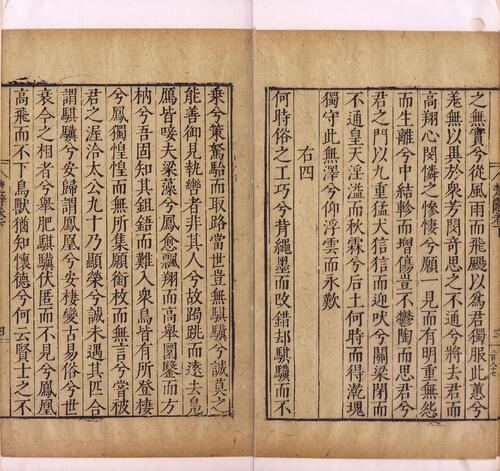 之無實兮從風雨而飛颺以爲君獨服此蕙兮
羌無以異於衆芳閔奇思之不通兮將去君而
高翔心閔憐之慘悽兮願一見而有明重無怨
而生離兮中結軫而增傷豈不鬱陶而思君兮
君之門以九重猛犬狺狺而迎吠兮關梁閉而
不通皇天淫溢而秋霖兮后土何時而得乾塊
獨守此無澤兮仰浮雲而永歎
右四
何時俗之工巧兮背繩墨而改錯却騏驥而不
乘兮策駑駘而取路當世豈無騏驥兮誠莫之
能善御見執轡者非其人兮故駶跳而遠去鳧
鴈皆唼夫梁藻兮鳳愈飄翔而高舉圜鑿而方
枘兮吾固知其鉏鋙而難入衆鳥皆有所登棲
兮鳳獨惶惶而無所集願銜枚而無言兮嘗被
君之渥洽太公九十乃顯榮兮誠未遇其匹合
謂騏驥兮安歸謂鳳凰兮安棲變古易俗兮世
衰今之相者兮舉肥騏驥伏匿而不見兮鳳凰
高飛而不下鳥獸猶知懷德兮何云賢士之不